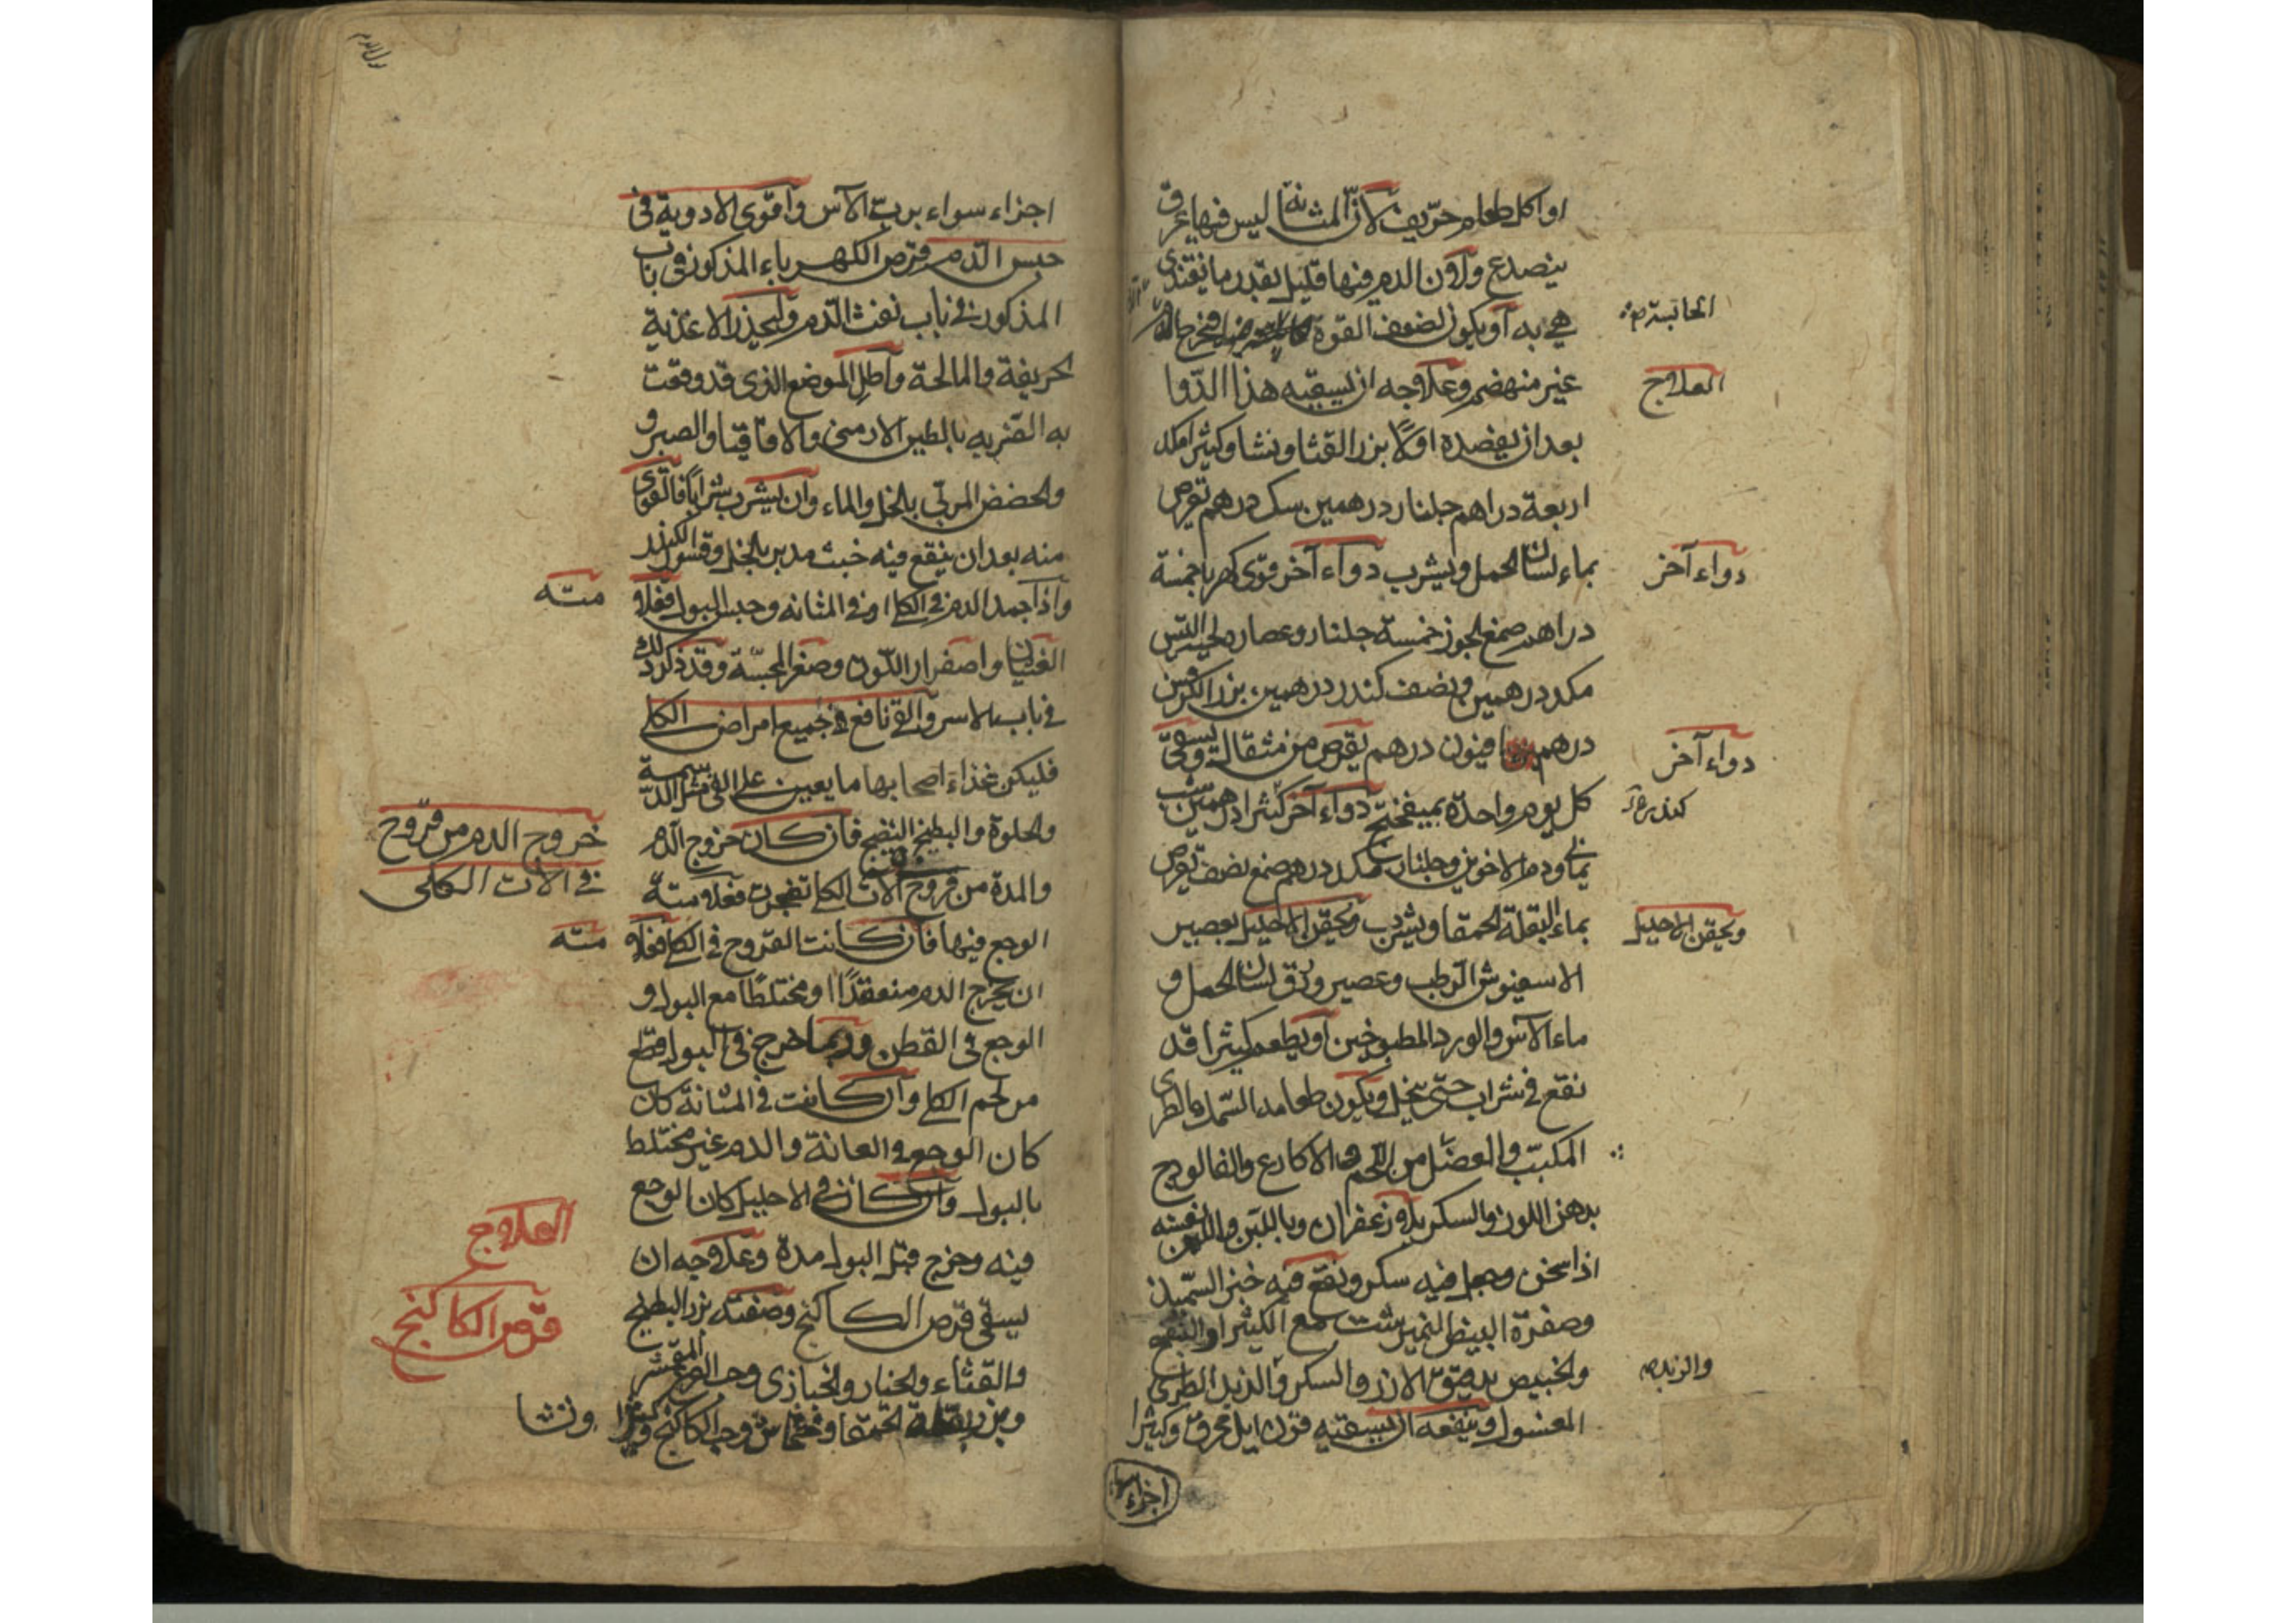 او اكل طعام حرّيف لأنّ المثانة ليس فيها عرق
ينصدع ولأن الدم فيها قليل بقدر ما تغتذى
هي به أو يكون لضعف القوة فيخرج
الماسكة صح
غير منهضم وعلاجه ان يسقيه هذا الدوا
العلاج
بعد ان يفصده اولًا بزر القثا ونشا وكثيرا مكد
اربعة دراهم جلنار درهمين سك درهم تقرص
بماء لسان الحمل ويشرب دواء آخر قوى كهربا خمسة
دواء آخر
دراهم صمغ الجوز خمسة جلنار وعصاره لحية التيس
مكد درهمين ونصف كندر درهمين بزر الكرفس
درهمين افيون درهم يقرص من مثقال ويسقى
دواء آخر
كل يوم واحدة بميفختج دواء آخر كثيرا درهمين شب
يمانى ودم الاخوين وجلنار مكد درهم صمغ نصف تقرص
بماء البقلة الحمقا ويشرب ويحقن الاحليل بعصير
ويحقن الاحليل
الاسفيوش الرطب وعصير ورق لسان الحمل و
ماء الآس والورد المطبوخين او يطعم كثيرا قد
نقع في شراب حتى ينحل ويكون طعامه السمك الطرى
المكبّب والعضل من اللحم والاكارع والفالوذج
بدهن اللوز والسكر بلا زعفران وباللبن واللبن نفسه
اذا سخن وجعل فيه سكر ونقع فيه خبز السميذ
وصفرة البيض النيمبرشت مع الكثيرا او النقيع
والخبيص بدقيق الارز والسكر والزبد الطرى
والزبد صح
المغسول وينفعه ان يسقيه قرن ايل محرق وكثيرا
اجزاء سواء
اجزاء سواء بربّ الآس وأقوى الادوية في
حبس الدم قرص الكهرباء المذكور في باب
المذكور في باب نفث الدم وليحذر الاغذية
الحريفة والمالحة وأطل الموضع الذى قد وقعت
به الضربه بالطين الارمنى والاقاقيا والصبر و
والحضض المربّى بالخل والماء وان يشرب شرابًا فالقوى
منه بعد ان ينقع فيه خبث مدبر بالخل وقشور الكندر
وأذا جمد الدم في الكلا او في المثانه وحبس البول فعلامته
الغثيان واصفرار اللون وصغر المجسّة وقد ذكر ذلك
في باب الاسر والقئ نافع في جميع امراض الكلى
فليكن غذاء اصحابها ما يعين على القئ مثل الدسمة
والحلوة والبطيخ النضيج فان كان خروج الدم
خروج الدم من قروح
في الات الكلى
والمدة من قروح الات الكلا تفجرت فعلامته
الوجع فيها فان كانت القروح في الكلى فعلامته
ان يخرج الدم منعقدًا او مختلطًا مع البول و
الوجع في القطن وربما خرج في البول قطع
من لحم الكلى وان كانت في المثانة كان
كان الوجع في العانة والدم غير مختلط
بالبول وان كان في الاحليل كان الوجع
فيه وخرج قبل البول مدة وعلاجه ان
العلاج
يسقى قرص الكاكنج وصفته بزر البطيخ
قرص الكاكنج
والقثاء والخيار والخبازى وحب القرع المقشر
وبزر بقلة الحمقا وخشخاش وحب الكاكنج وكثيرا ونشا